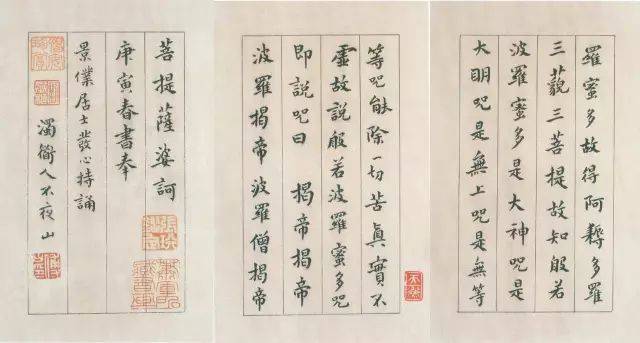 羅蜜多故得阿耨多羅
三藐三菩提故知般若
波羅蜜多是大神咒是
大明咒是無上咒是無等
等咒能除一切苦眞實不
虛故說般若波羅蜜多咒
即說咒曰 揭帝揭帝
波羅揭帝波羅僧揭帝
菩提薩婆訶
庚寅春書奉
景僕居士發心持誦
濁衜人不夜山